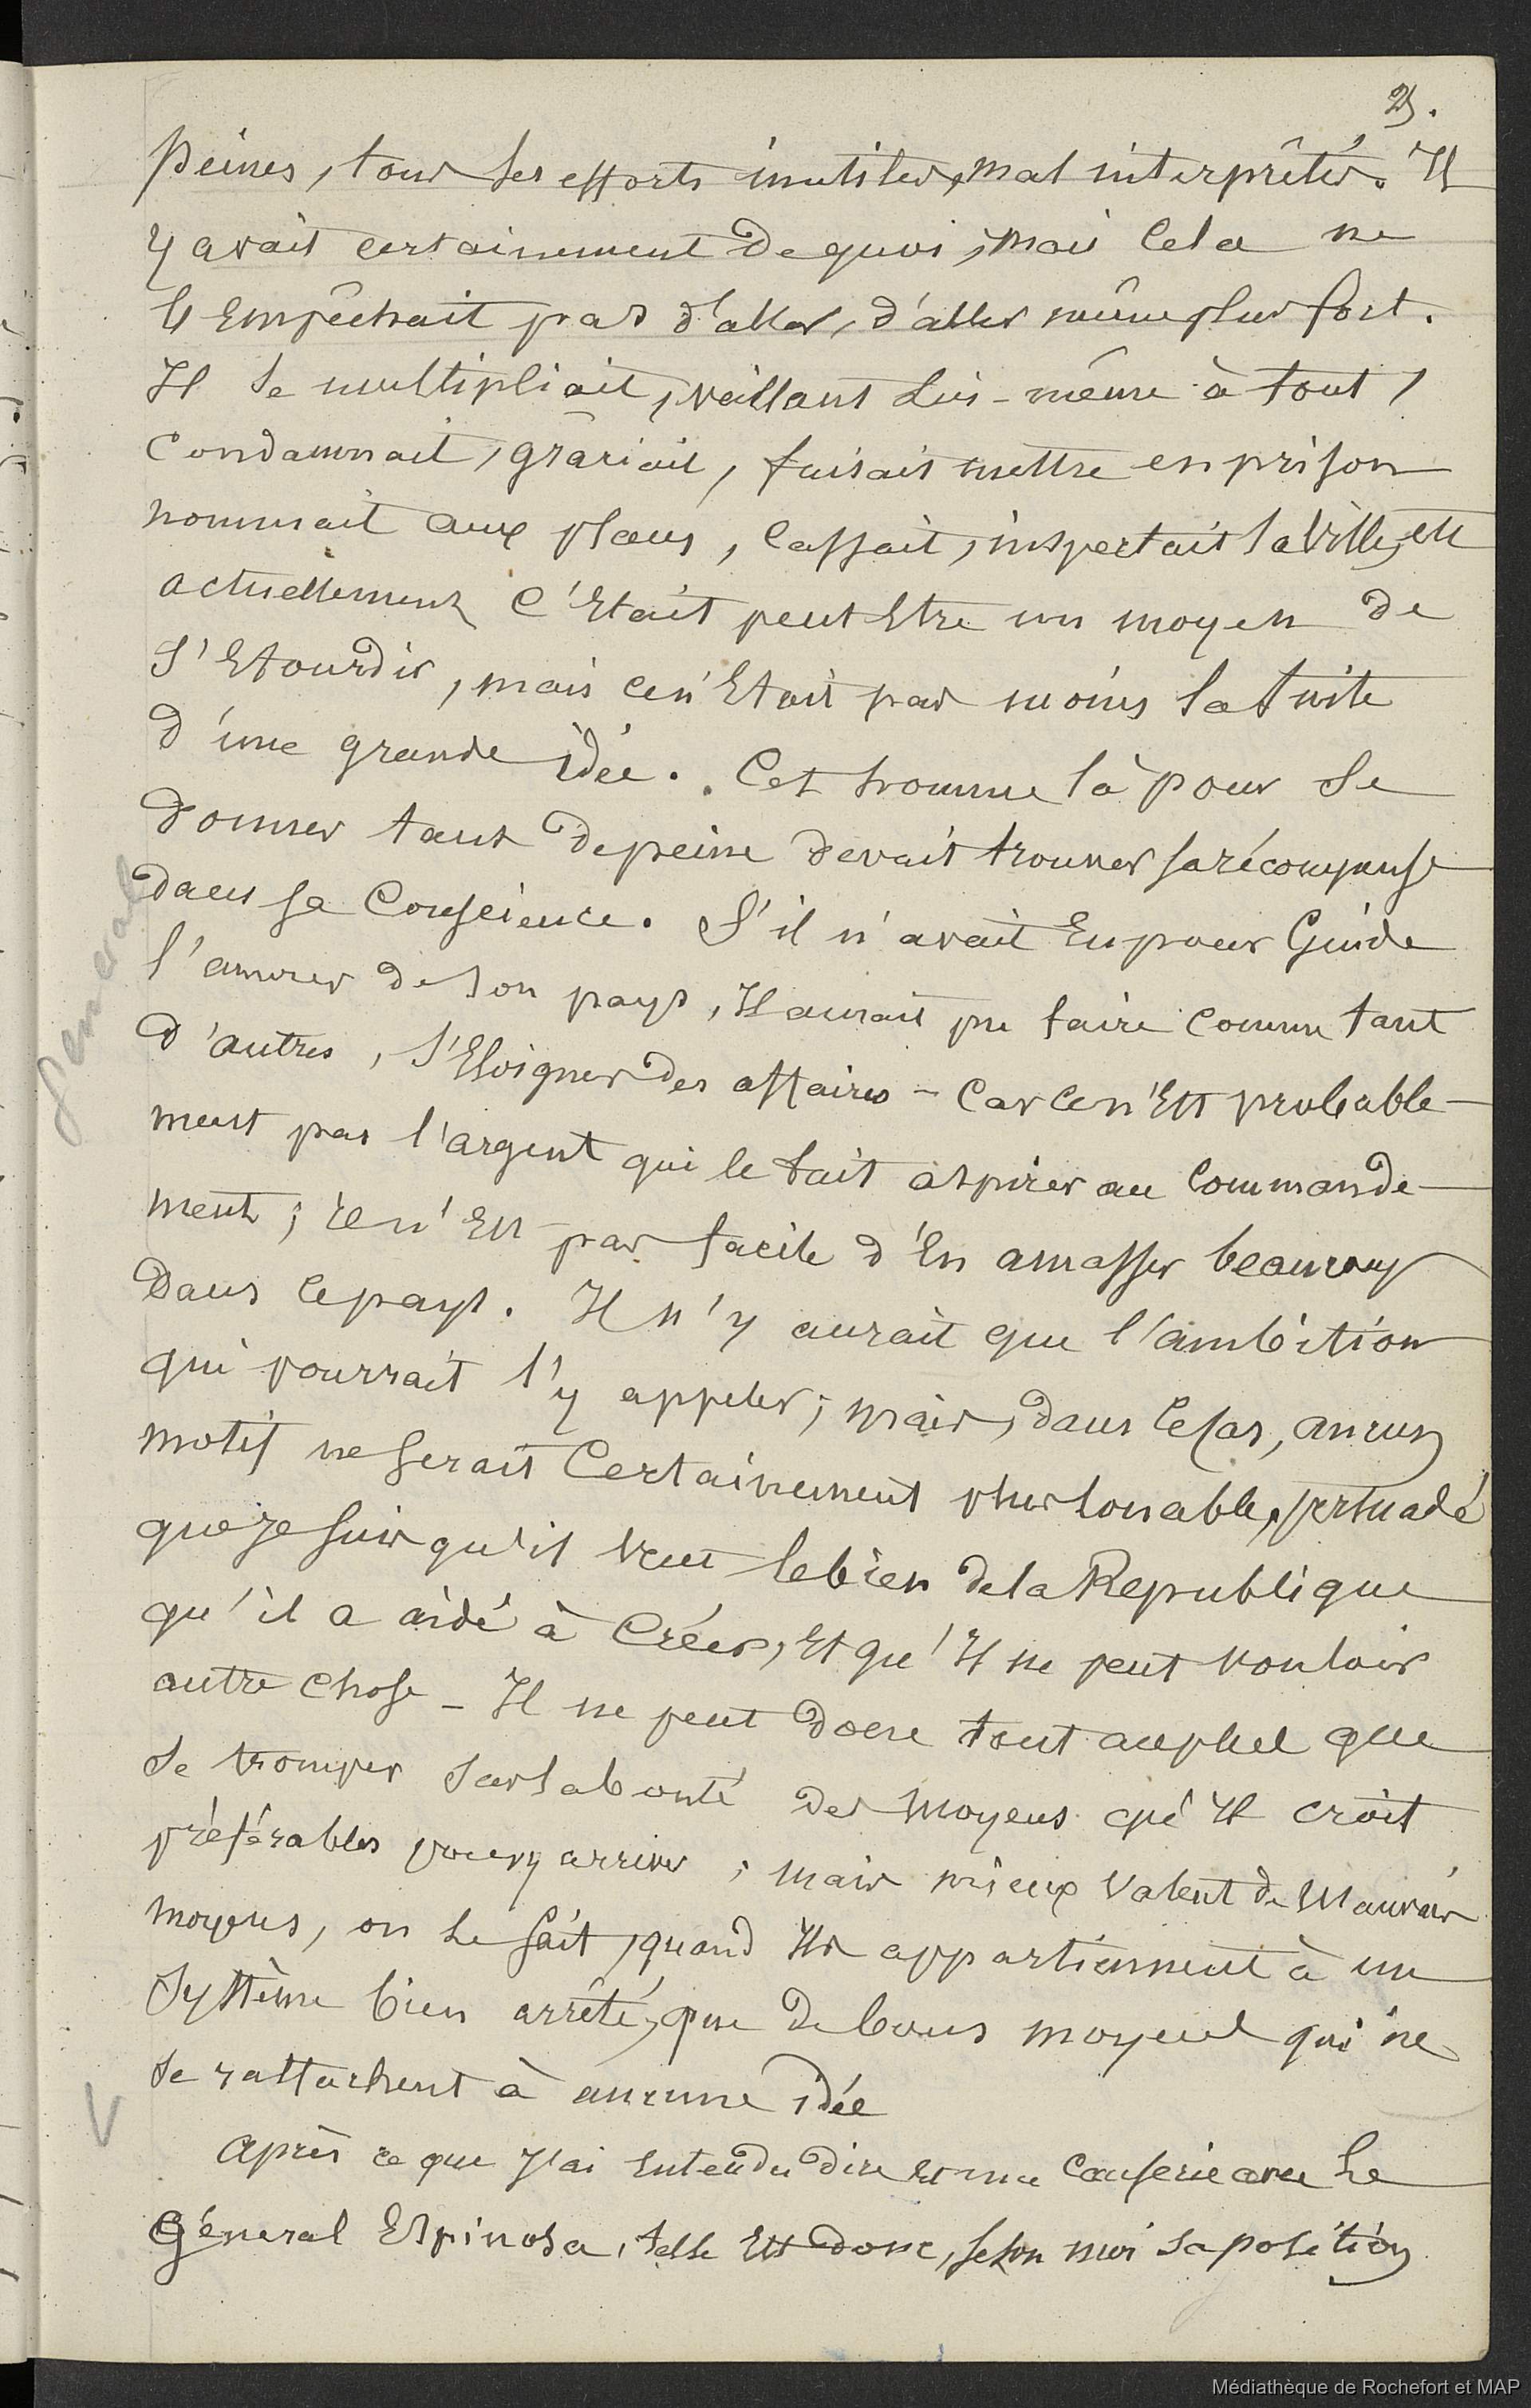 25.
peines, tous ses efforts inutiles, mal interprêtés. Il
y avait certainement de quoi, mais cela ne
l'Empêchait pas d'aller, d'aller même plus fort.
Il se multipliait, veillant lui-même à tout,
condamnait, graciait, faisait mettre en prison
nommait aux places, cassait, inspectait la Ville, et
actuellement c'Etait peut Etre un moyen de
s'Etourdir, mais ce n'Etait pas moins la suite
d'une grande idée. Cet homme là pour se
donner tant de peine devait trouver sa récompense
dans sa Conscience. S'il n'avait Eu pour Guide
l'amour de son pays, Il aurait pu faire comme tant
d'autres, s'Eloigner des affaires - Car ce n'Est probable-
ment pas l'argent qui le fait aspirer au commande-
ment; ce n'Est pas facile d'En amasser beaucoup
dans ce pays. Il n'y aurait que l'ambition
qui pourrait l'y appeler; mais, dans ce cas, aucun
motif ne serait Certainement plus louable, persuadé
que je suis qu'il veut le bien de la République
qu'il a aidé à Créer, Et qu'Il ne peut vouloir
autre chose - Il ne peut donc tout au plus que
se tromper sur la bonté des moyens qu'Il croit
préférables pour y arriver; mais mieux valent de Mauvais
moyens, on le sait, quand Ils appartiennent à un
Système bien arrêté, que de bons moyens qui ne
se rattachent à aucune idée
Général
Après ce que J'ai Entendu dire Et ma Causerie avec le
Géneral Espinosa, telle Est donc, selon moi sa position
V
Médiathèque de Rochefort et MAP